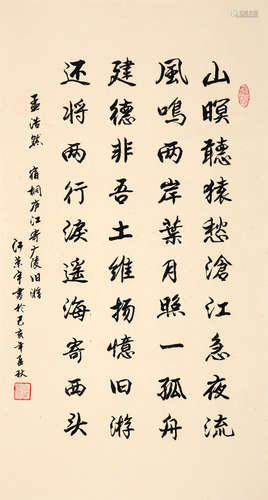 山暝聽猿愁滄江急夜流
風鳴两岸葉月照一孤舟
建德非吾土维扬憶旧游
还将两行淚遥海寄西头
孟浩然 宿桐庐江寄广陵旧游
书於己亥年春秋